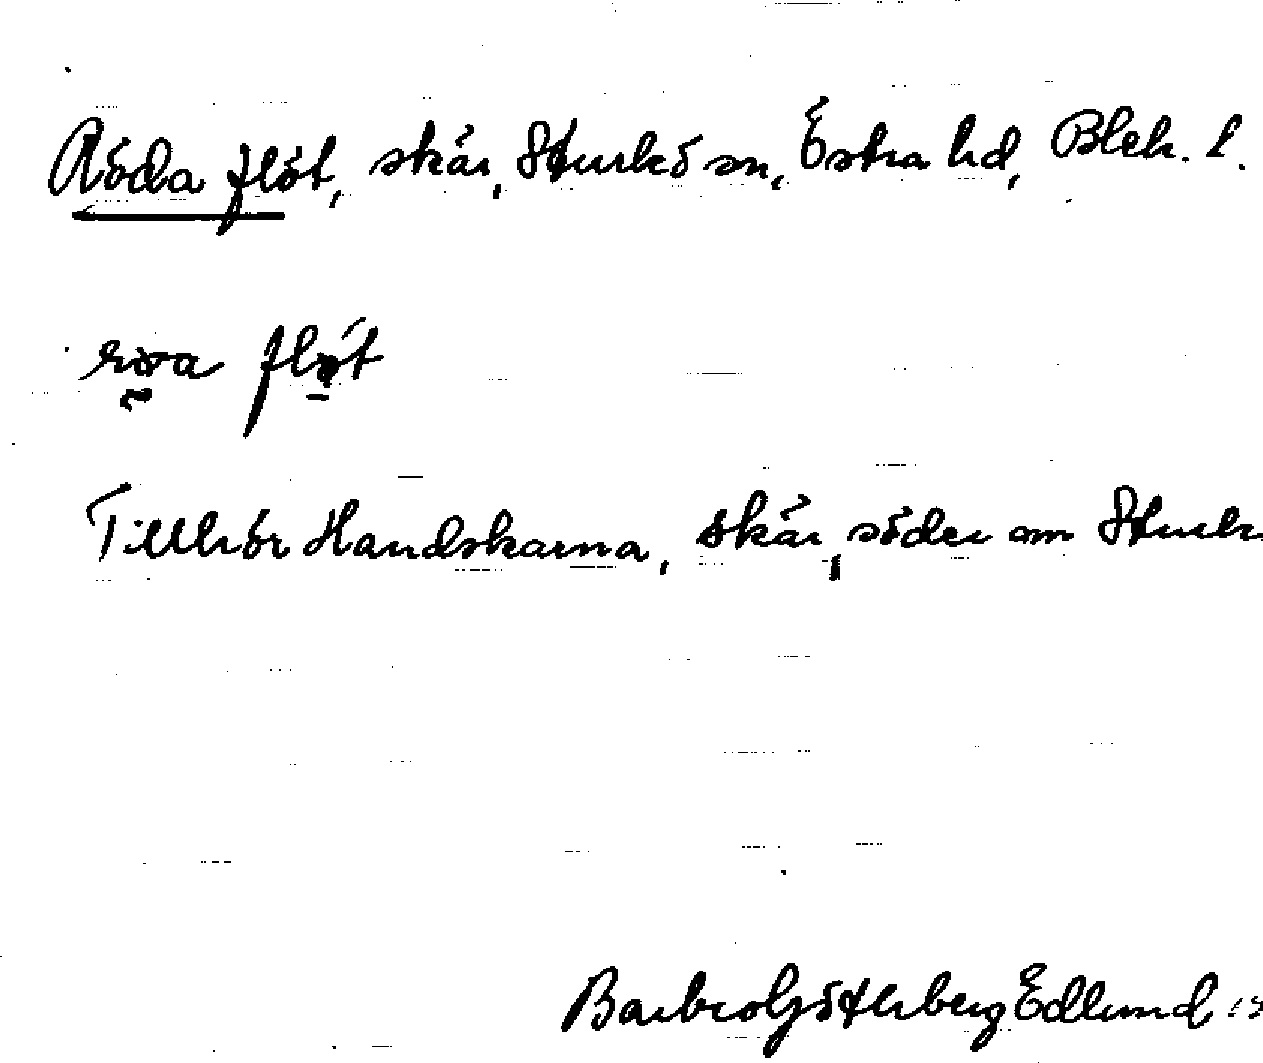 Röda flöt, skär, Sturkö sn, Östra hd, Blek. l.
röa flöt
Tillhör Handskarna, skär, söder om Sturk
Barbro Götherberg Edlund 19